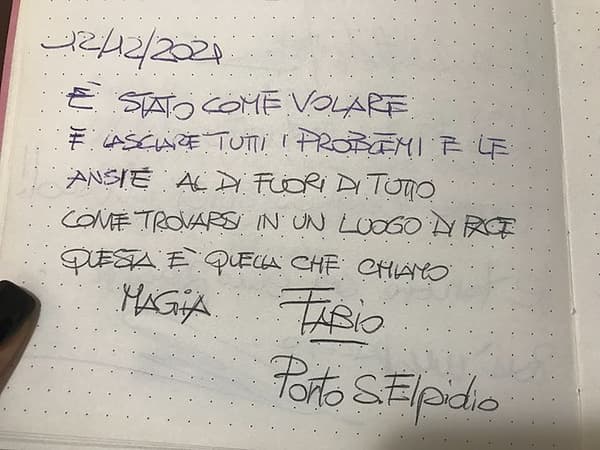 12/12/2021
È STATO COME VOLARE
E LASCIARE TUTTI I PROBLEMI E LE
ANSIE AL DI FUORI DI TUTTO
COME TROVARSI IN UN LUOGO DI PACE
QUESTA È QUELLA CHE CHIAMO
MAGIA FABIO
Porto S. Elpidio